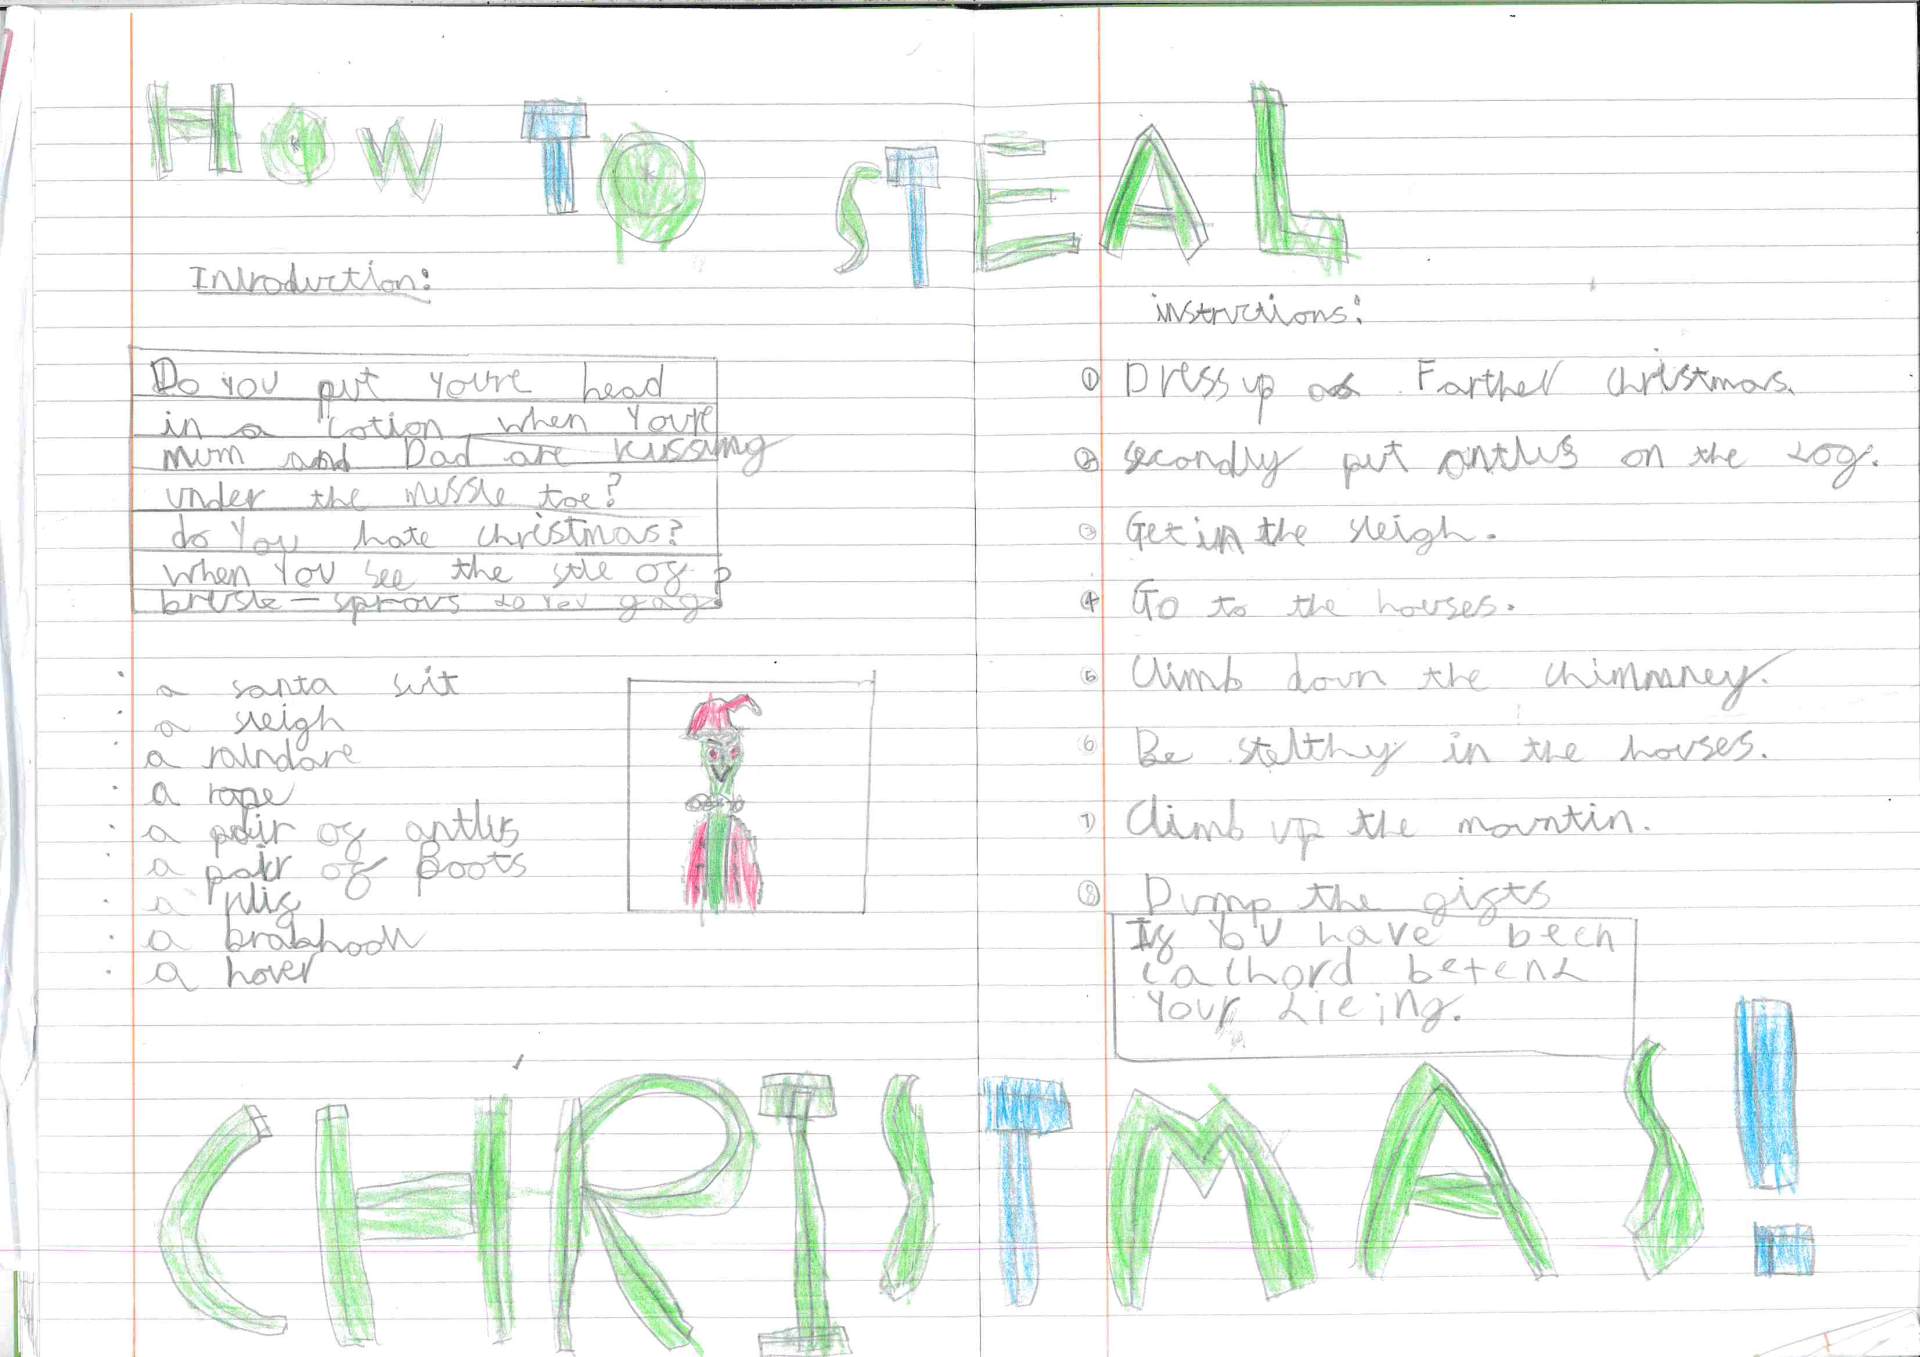 HOW TO STEAL
Introduction:
Do you put youre head
in a cotion when Youre
mum and Dad are kissing
under the missle toe?
do You hate christmas?
when You see the stle of
brusle-sprous do you gag?
a santa suit
a sleigh
a raindare
a rope
a pair of antlis
a pair of Boots
a
a brabhook
a hover
instructions:
1 Dress up as Farther christmas.
2 secondly put antlis on the dog.
3 Get in the sleigh.
4 Go to the houses.
5 Climb down the chimmney.
6 Be stelthy in the houses.
7 Climb up the mountin.
8 Dump the gifts
If You have been
cachord betend
Your Lieing.
CHRISTMAS!